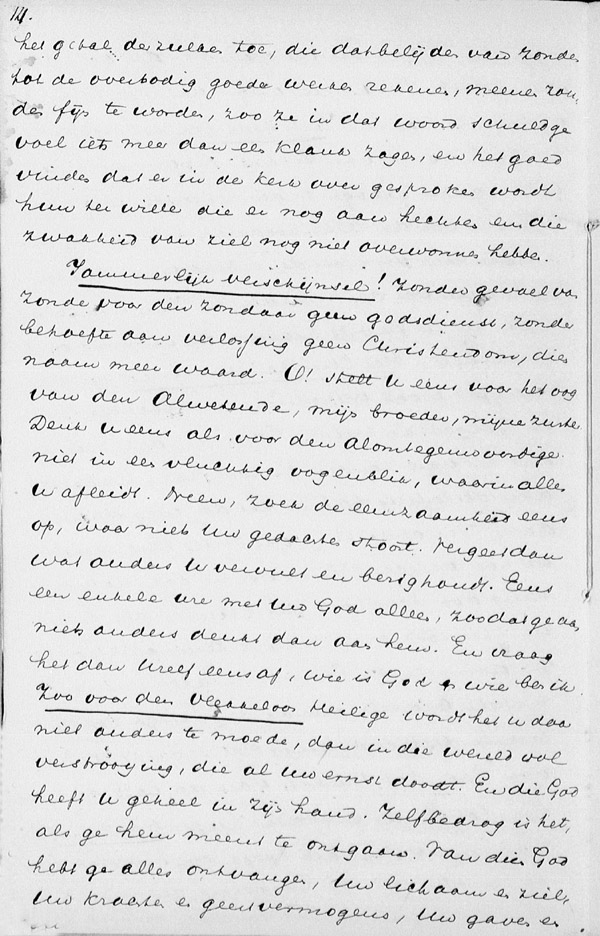 14.
het getal derzulken toe, die dat belijden van zonden
tot de overbodig goede werken rekenen, meenen zon-
den fijn te worden, zoo ze in dat woord schuldge
voel iets meer dan een klank zagen, en het goed
vinden dat er in de kerk over gesproken wordt
hun ter wille die er nog aan hechten en die
zwakheid van ziel nog niet overwonnen hebben.
Jammerlijk verschijnsel! Zonder gevoel van
zonde voor den zondaar geen godsdienst, zonder
behoefte aan verlossing geen Christendom, dien
naam meer waard. O! stelt u eens voor het oog
van den Alwetende, mijn broeder, mijne zuster.
Denk u eens als voor den Alomtegenwoordige
niet in een vluchtig oogenblik, waarin alles
u afleidt. Neen, zoek de eenzaamheid eens
op, waar niets Uw gedachten stoort. Vergeet dan
wat anders u vervult en bezighoudt. Eens
een enkele ure met Uw God alleen, zoodat ge aan
niets anders denkt dan aan hem. En vraag
het dan Uzelf eens af, wie is God & wie ben ik.
Zoo voor den vlekkeloos Heilige wordt het u daar
niet anders te moede, dan in die wereld vol
verstrooying, die al Uw ernst doodt. En die God
heeft u geheel in zijn hand. Zelfbedrog is het,
als ge hem meent te ontgaan. Van dien God
hebt ge alles ontvangen, Uw lichaam en ziel,
Uw krachten en geestvermogens, Uw gaven en